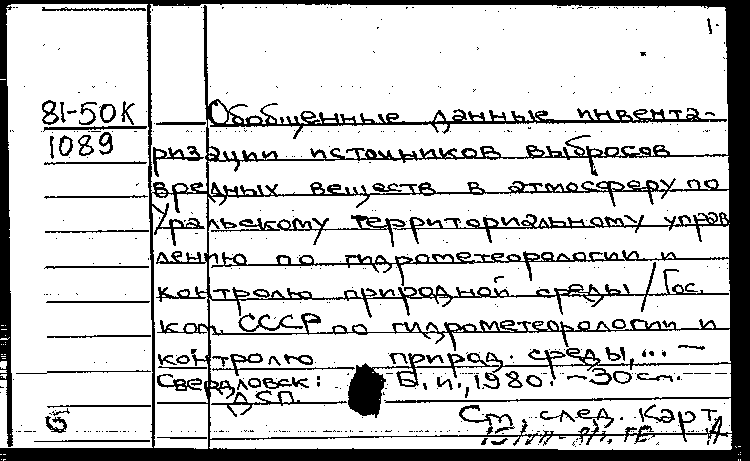 1.
81-50К
1089
Обобщенные данные инвента-
ризации источников выбросов
вредных веществ в атмосферу по
Уральскому территориальному управ
лению по гидрометеорологии и
контролю природной среды / Гос.
ком. СССР по гидрометеорологии и
контролю природ. среды, ... —
Свердловск: Б. и., 1980. - 30 см.
ДСП.
См. след. карт.